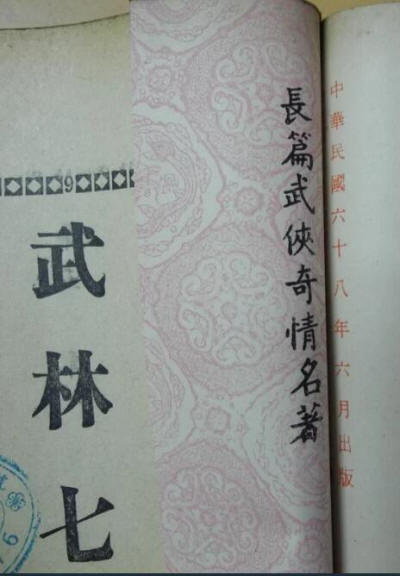 中華民國六十八年六月出版
長篇武俠奇情名著
9
武林七